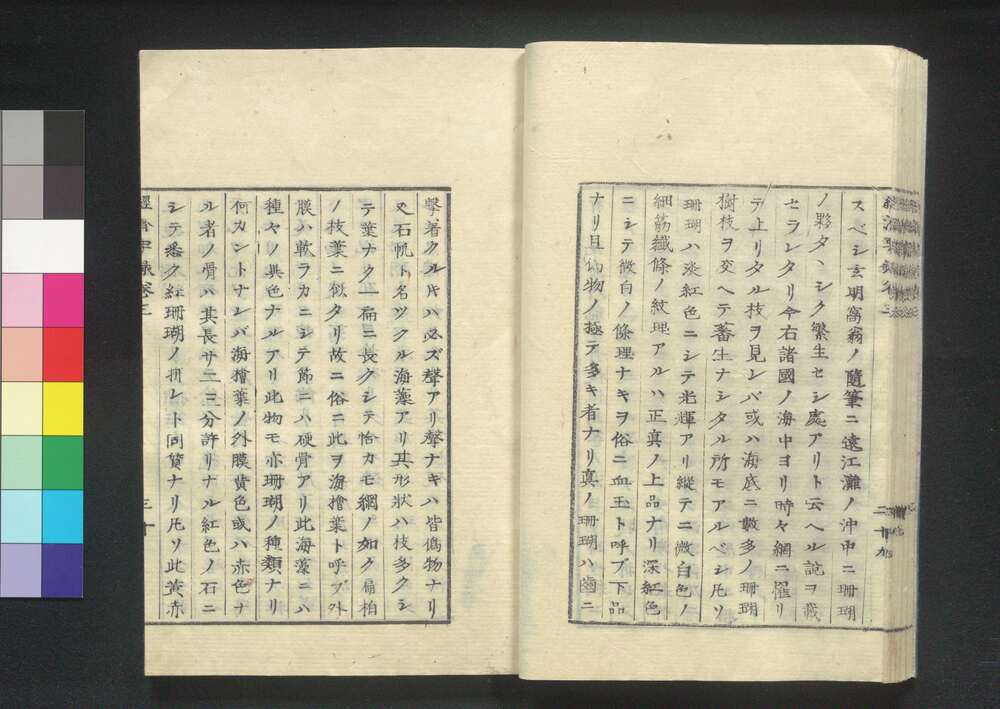 スベシ玄明窩翁ノ隨筆ニ遠江灘ノ沖中ニ珊瑚
ノ夥タヽシク繁生セシ處アリト云ヘル説ヲ載
セランタリ今右諸國ノ海中ヨリ時々網ニ罹リ
テ上リタル枝ヲ見レバ或ハ海底ニ數多ノ珊瑚
樹枝ヲ交ヘテ蕃生ナシタル所モアルベシ凡ソ
珊瑚ハ淡紅色ニシテ光輝アリ縱テニ微白色ノ
細筋纖條ノ紋理アルハ正真ノ上品ナリ深紅色
ニシテ微白ノ條理ナキヲ俗ニ血玉ト呼ブ下品
ナリ且偽物ノ極テ多キ者ナリ真ノ珊瑚ハ齒ニ
二十九
擊着クル片ハ必ズ聲アリ聲ナキハ皆僞物ナリ
又石帆ト名ツクル海藻アリ其形狀ハ枝多クシ
テ葉ナク一扁ニ長クシテ恰カモ網ノ如ク扁柏
ノ枝葉ニ似タリ故ニ俗ニ此ヲ海檜葉ト呼ブ外
膜ハ軟ラカニシテ節ニハ硬骨アリ此海藻ニハ
種々ノ異色ナルアリ此物モ亦珊瑚ノ種類ナリ
何カントナレバ海檜葉ノ外膜黄色或ハ赤色ナ
ル者ノ骨ハ其長サ二三分許リナル紅色ノ石ニ
シテ悉ク紅珊瑚ノ折レト同質ナリ凡ソ此黄赤
三十